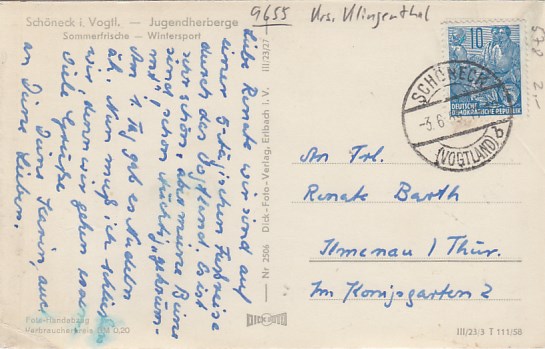 Schöneck i. Vogtl. — Jugendherberge
Sommerfrische — Wintersport
9655 Krs. Klingenthal
578
2,-
Liebe Renate wir sind auf
einer 5 tägischen Fußreise
durch das Vogtland. Es ist
sehr schön, aber meine Beine
sind schon tüchtig
Am 1. Tag gab es Nudeln
ah. Nun muß ich schließen
wir, denn wir gehen essen.
Viele Grüße
Deine Karin, auch
an Deine Lieben.
Foto-Handabzug
Verbraucherpreis DM 0,20
III/23/27 —
— Nr 2506 Dick-Foto-Verlag, Erlbach i. V.
DICK
10
DEUTSCHE
DEMOKRATISCHE REPUBLIK
SCHÖNECK
-3.6
(VOGTLAND)
b
An Frl.
Renate Barth
Ilmenau / Thür.
Im Königsgarten 2
III/23/3 T 111/58